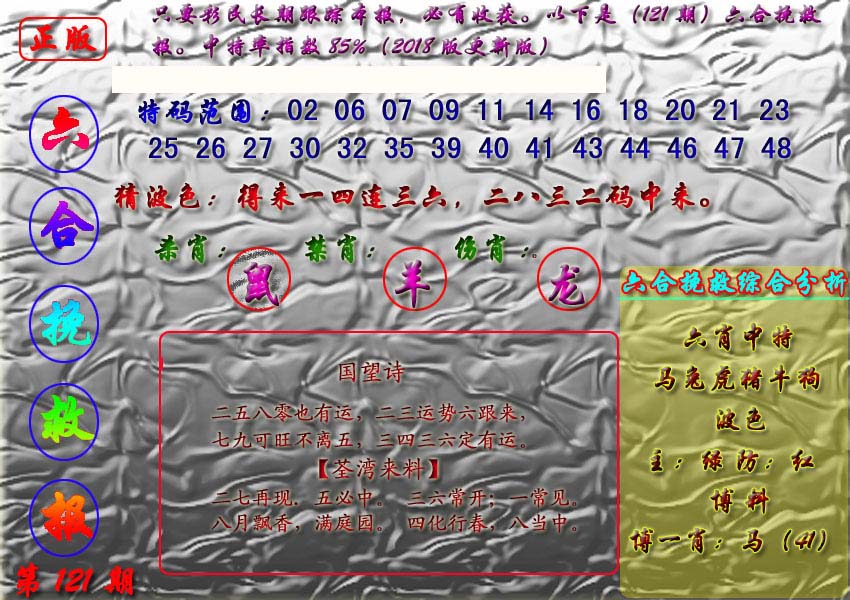 正版
只要彩民长期跟踪本报，必有收获。以下是（121期）六合挽救
报。中特率指数85%（2018版更新版）
六合挽救报
第121期
特码范围：02 06 07 09 11 14 16 18 20 21 23
25 26 27 30 32 35 39 40 41 43 44 46 47 48
猜波色：得来一四连三六，二八三二码中来。
杀肖：鼠 禁肖：羊 伤肖：龙
国望诗
二五八零也有运，二三运势六跟来，
七九可旺不离五，三四三六定有运。
【荃湾来料】
二七再现．五必中。 三六常开；一常见。
八月飘香，满庭园。 四化行春，八当中。
六合挽救综合分析
六肖中特
马兔虎猪牛狗
波色
主：绿防：红
博料
博一肖：马（41）